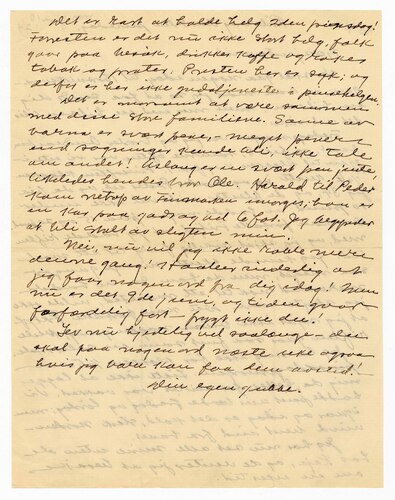 Det er rart at holde helg 2den pinsedag!
Foresten er det nu ikke stort helg, folk
gaar paa besøk, drikker kaffe og røker
tobak og prater. Presten her er syk, og
derfor er her ikke gudstjeneste i pinsehelgen.
Det er morsomt at være sammen
med disse store familiene. av
barna er svært pene, - meget penere
end sogninger kunde bli, ikke tale
om andet! Aslaug er en svært pen jente
likeledes hendes bror Ole. Harald til Peder
kom netop av imorges, han er
en kar paa og vel 6 fot. Jeg begynder
at bli stolt av slegten min.
Nei, nu vil jeg ikke rable mere
denne gang! Haaber inderlig at
jeg faar nogen ord fra dig idag!
nu er det 9de juni, og tiden gaar
forfærdelig fort - frygt ikke du.
Lev nu hjertelig vel saalænge - du
skal faa nogen ord næste uke ogsaa
hvis jeg bare kan faa dem avsted!
Din egen gubbe.